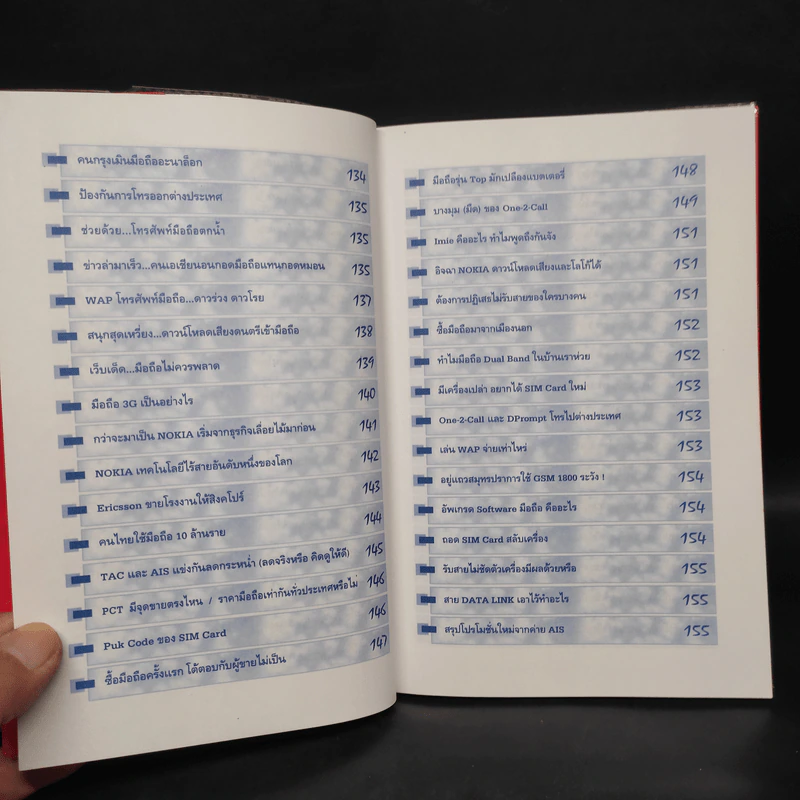 คนกรุงเมินมือถืออะนาล็อก 134
ป้องกันการโทรออกต่างประเทศ 135
ช่วยด้วย...โทรศัพท์มือถือตกน้ำ 135
ข่าวล่ามาเร็ว...คนเอเชียนอนกอดมือถือแทนกอดหมอน 135
WAP โทรศัพท์มือถือ...ดาวร่วง ดาวโรย 137
สนุกสุดเหวี่ยง...ดาวน์โหลดเสียงดนตรีเข้ามือถือ 138
เว็บเด็ด...มือถือไม่ควรพลาด 139
มือถือ 3G เป็นอย่างไร 140
กว่าจะมาเป็น NOKIA เริ่มจากธุรกิจเลื่อยไม้มาก่อน 141
NOKIA เทคโนโลยีไร้สายอันดับหนึ่งของโลก 142
Ericsson ขายโรงงานให้สิงคโปร์ 143
คนไทยใช้มือถือ 10 ล้านราย 144
TAC และ AIS แข่งกันลดกระหน่ำ (ลดจริงหรือ คิดดูให้ดี) 145
PCT มีจุดขายตรงไหน / ราคามือถือเท่ากันทั่วประเทศหรือไม่ 146
Puk Code ของ SIM Card 146
ซื้อมือถือครั้งแรก โต้ตอบกับผู้ขายไม่เป็น 147
มือถือรุ่น Top มักเปลืองแบตเตอรี่ 148
บางมุม (มืด) ของ One-2-Call 149
Imie คืออะไร ทำไมพูดถึงกันจัง 151
อิจฉา NOKIA ดาวน์โหลดเสียงและโลโก้ได้ 151
ต้องการปฏิเสธไม่รับสายของใครบางคน 151
ซื้อมือถือมาจากเมืองนอก 152
ทำไมมือถือ Dual Band ในบ้านเราห่วย 152
มีเครื่องเปล่า อยากได้ SIM Card ใหม่ 153
One-2-Call และ DPrompt โทรไปต่างประเทศ 153
เล่น WAP จ่ายเท่าไหร่ 153
อยู่แถวสมุทรปราการใช้ GSM 1800 ระวัง ! 154
อัพเกรด Software มือถือ คืออะไร 154
ถอด SIM Card สลับเครื่อง 154
รับสายไม่ชัดตัวเครื่องมีผลด้วยหรือ 155
สาย DATA LINK เอาไว้ทำอะไร 155
สรุปโปรโมชั่นใหม่จากค่าย AIS 155